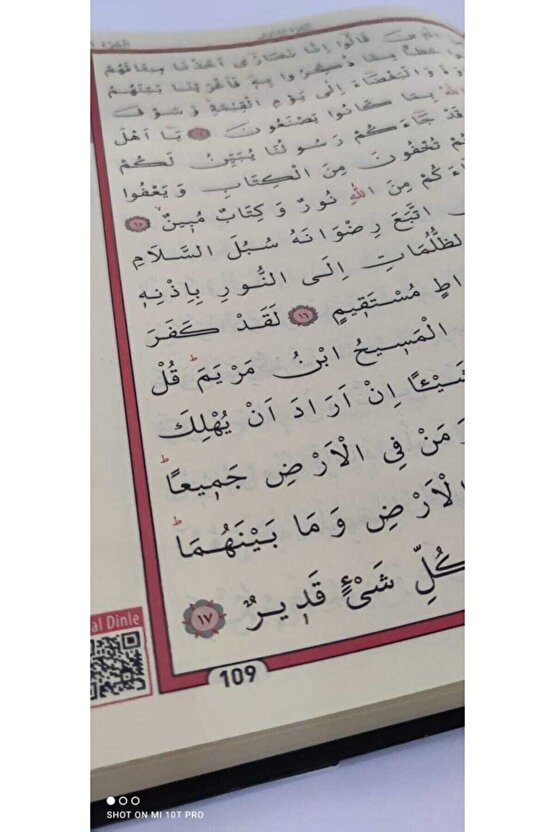 قَالُوا اِنَّا نَصَارٰى اَخَذْنَا مِيثَاقَهُمْ
حَظًّا مِمَّا ذُكِّرُوا بِهِ فَاَغْرَيْنَا بَيْنَهُمُ
وَةَ وَالْبَغْضَاءَ اِلٰى يَوْمِ الْقِيٰمَةِ وَسَوْفَ
اللّٰهُ بِمَا كَانُوا يَصْنَعُونَ ١٤ يَا اَهْلَ
قَدْ جَاءَكُمْ رَسُولُنَا يُبَيِّنُ لَكُمْ
تُمْ تُخْفُونَ مِنَ الْكِتَابِ وَيَعْفُوا
ءَكُمْ مِنَ اللّٰهِ نُورٌ وَكِتَابٌ مُبِينٌ ١٥
اتَّبَعَ رِضْوَانَهُ سُبُلَ السَّلَامِ
لظُّلُمَاتِ اِلَى النُّورِ بِاِذْنِهِ
اطٍ مُسْتَقِيمٍ ١٦ لَقَدْ كَفَرَ
الْمَسِيحُ ابْنُ مَرْيَمَ قُلْ
شَيْـًٔا اِنْ اَرَادَ اَنْ يُهْلِكَ
وَمَنْ فِي الْاَرْضِ جَمِيعًا
الْاَرْضِ وَمَا بَيْنَهُمَا
كُلِّ شَيْءٍ قَدِيرٌ ١٧
al Dinle
109
SHOT ON MI 10T PRO